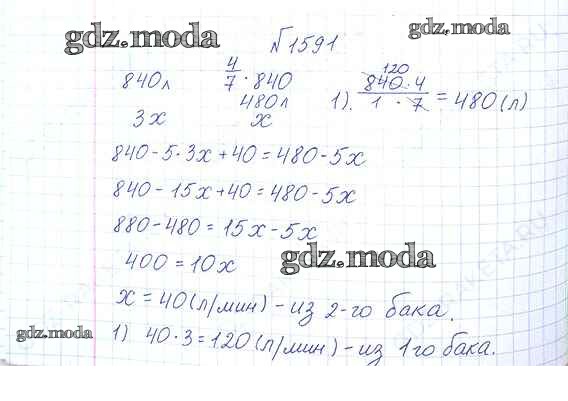 gdz.moda
gdz.moda
№1591
840л 4/7 · 840
480л
3x x
1). 840 · 4 / 1 · 7 = 480 (л)
120
840 - 5 · 3x + 40 = 480 - 5x
840 - 15x + 40 = 480 - 5x
880 - 480 = 15x - 5x
400 = 10x
gdz.moda
x = 40 (л/мин) - из 2-го бака.
gdz.moda
1) 40 · 3 = 120 (л/мин) - из 1го бака.